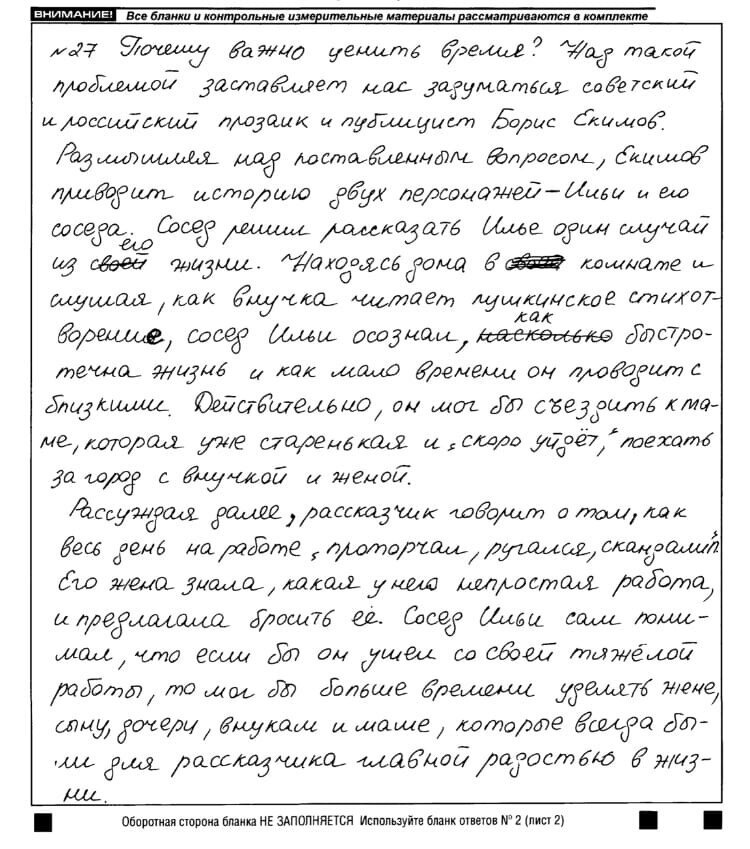 ВНИМАНИЕ! Все бланки и контрольные измерительные материалы рассматриваются в комплекте
№27 Почему важно ценить время? Над такой
проблемой заставляет нас задуматься советский
и российский прозаик и публицист Борис Екимов.
Размышляя над поставленным вопросом, Екимов
приводит историю двух персонажей – Ильи и его
соседа. Сосед решил рассказать Илье один случай
из своей его жизни. Находясь дома в комнате и
слушая, как внучка читает пушкинское стихот-
ворение, сосед Ильи осознал, насколько как быстро-
течна жизнь и как мало времени он проводит с
близкими. Действительно, он мог бы съездить к ма-
ме, которая уже старенькая и „скоро уйдёт," поехать
за город с внучкой и женой.
Рассуждая далее, рассказчик говорит о том, как
весь день на работе „проторчал, ругался, скандалил"
Его жена знала, какая у него непростая работа,
и предлагала бросить её. Сосед Ильи сам пони-
мал, что если бы он ушел со своей тяжёлой
работы, то мог бы больше времени уделять жене,
сыну, дочери, внукам и маме, которые всегда бы-
ли для рассказчика главной радостью в жиз-
ни.
Оборотная сторона бланка НЕ ЗАПОЛНЯЕТСЯ Используйте бланк ответов № 2 (лист 2)